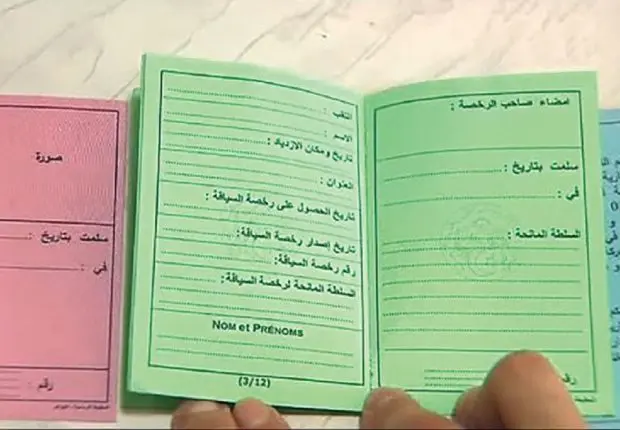 صورة
سلمت بتاريخ :
في :
رقم :
اللقب :
الاسم :
تاريخ ومكان الازدياد :
العنوان :
تاريخ الحصول على رخصة السياقة :
تاريخ إصدار رخصة السياقة :
رقم رخصة السياقة :
السلطة المانحة لرخصة السياقة :
NOM et PRÉNOMS
(3/12)
امضاء صاحب الرخصة :
سلمت بتاريخ :
في :
السلطة المانحة :